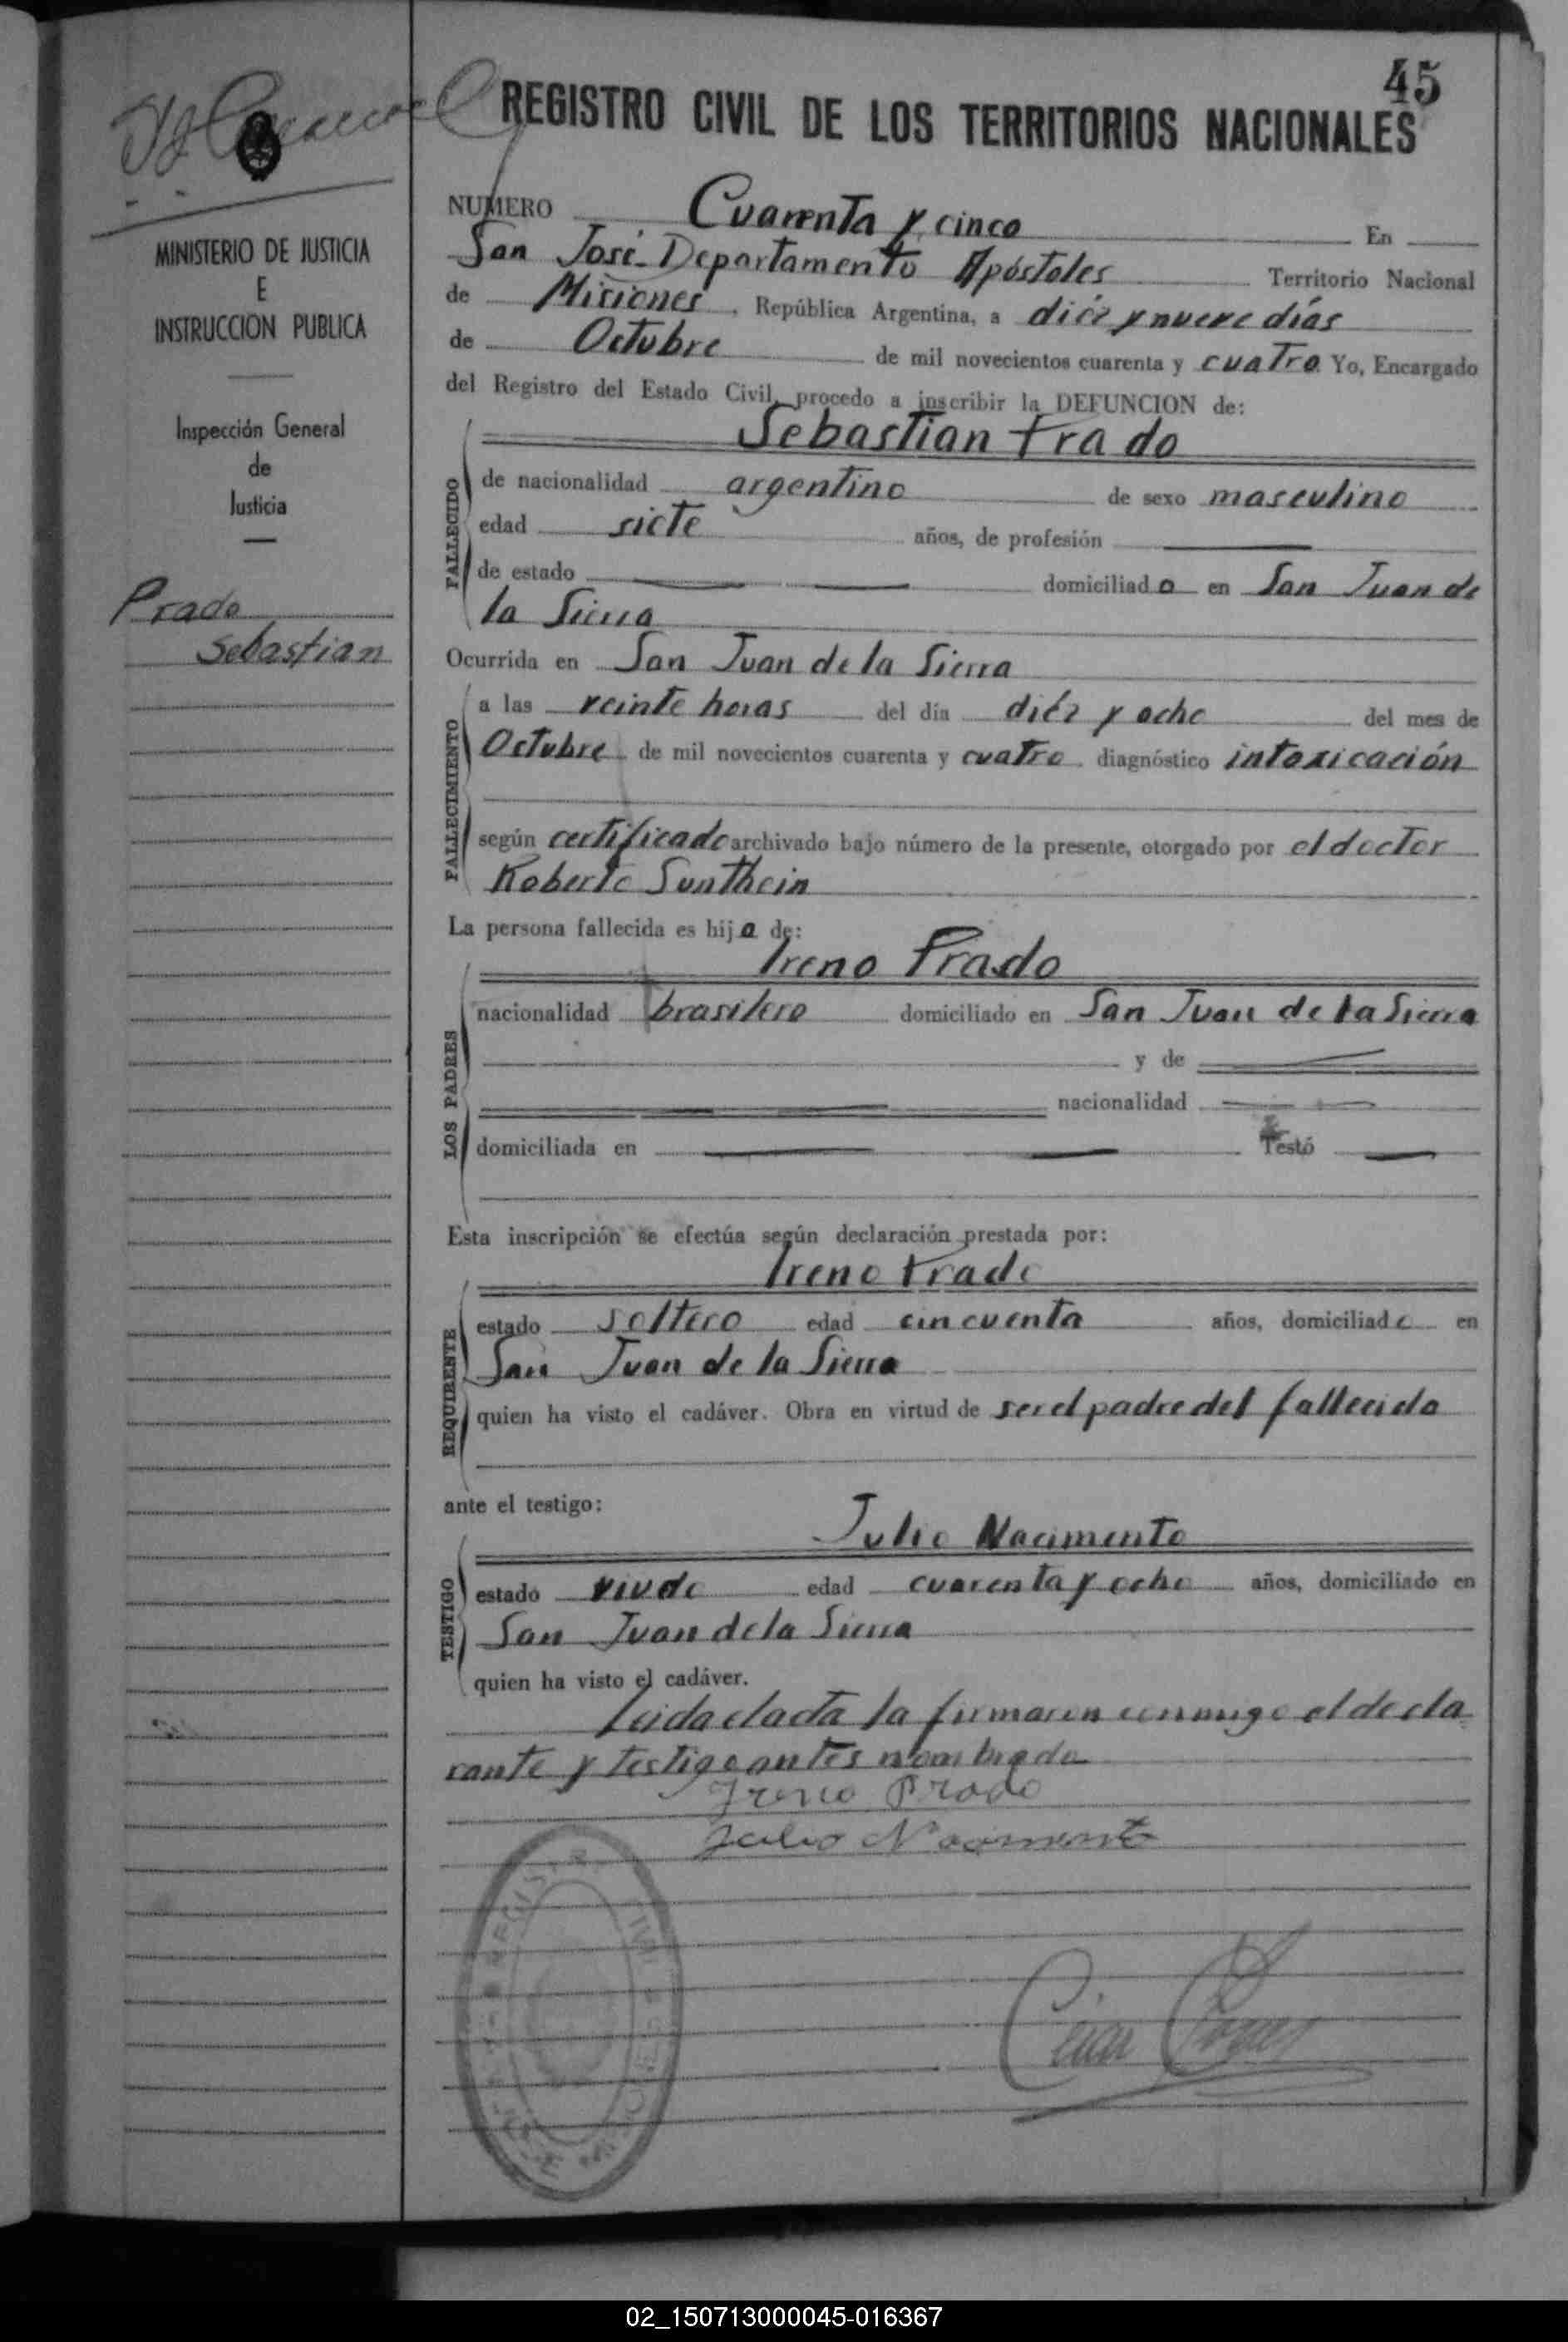 45
REGISTRO CIVIL DE LOS TERRITORIOS NACIONALES
MINISTERIO DE JUSTICIA
E
INSTRUCCION PUBLICA
Inspección General
de
Justicia
Prado
Sebastian
NUMERO Cuarenta y cinco En
San José Departamento Apóstoles Territorio Nacional
de Misiones, República Argentina, a diéz y nueve días
de Octubre de mil novecientos cuarenta y cuatro Yo, Encargado
del Registro del Estado Civil, procedo a inscribir la DEFUNCION de:
Sebastian Prado
FALLECIDO
de nacionalidad argentino de sexo masculino
edad siete años, de profesión
de estado domiciliado en San Juan de
la Sierra
Ocurrida en San Juan de la Sierra
FALLECIMIENTO
a las veinte horas del día diéz y ocho del mes de
Octubre de mil novecientos cuarenta y cuatro. diagnóstico intoxicación
según certificado archivado bajo número de la presente, otorgado por el doctor
Roberto Sunthein
La persona fallecida es hijo de:
Ireno Prado
LOS PADRES
nacionalidad brasilero domiciliado en San Juan de la Sierra
y de
nacionalidad
domiciliada en Testó
Esta inscripción se efectúa según declaración prestada por:
Ireno Prado
REQUIRENTE
estado soltero edad cincuenta años, domiciliado en
San Juan de la Sierra
quien ha visto el cadáver. Obra en virtud de ser el padre del fallecido
ante el testigo:
Julio Nacimento
TESTIGO
estado viudo edad cuarenta y ocho años, domiciliado en
San Juan de la Sierra
quien ha visto el cadáver.
Leida el acta la firmaron conmigo el decla
rante y testigo antes nombrado
Ireno Prado
Julio Nacimento
02_150713000045-016367